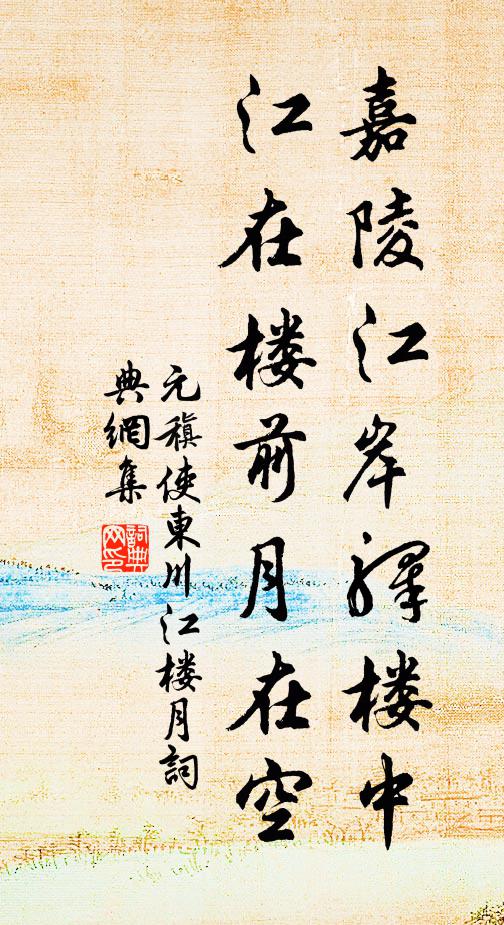 嘉陵江岸驛楼中
江在楼前月在空
元稹使東川江楼月詞
典網集
詞典
网印